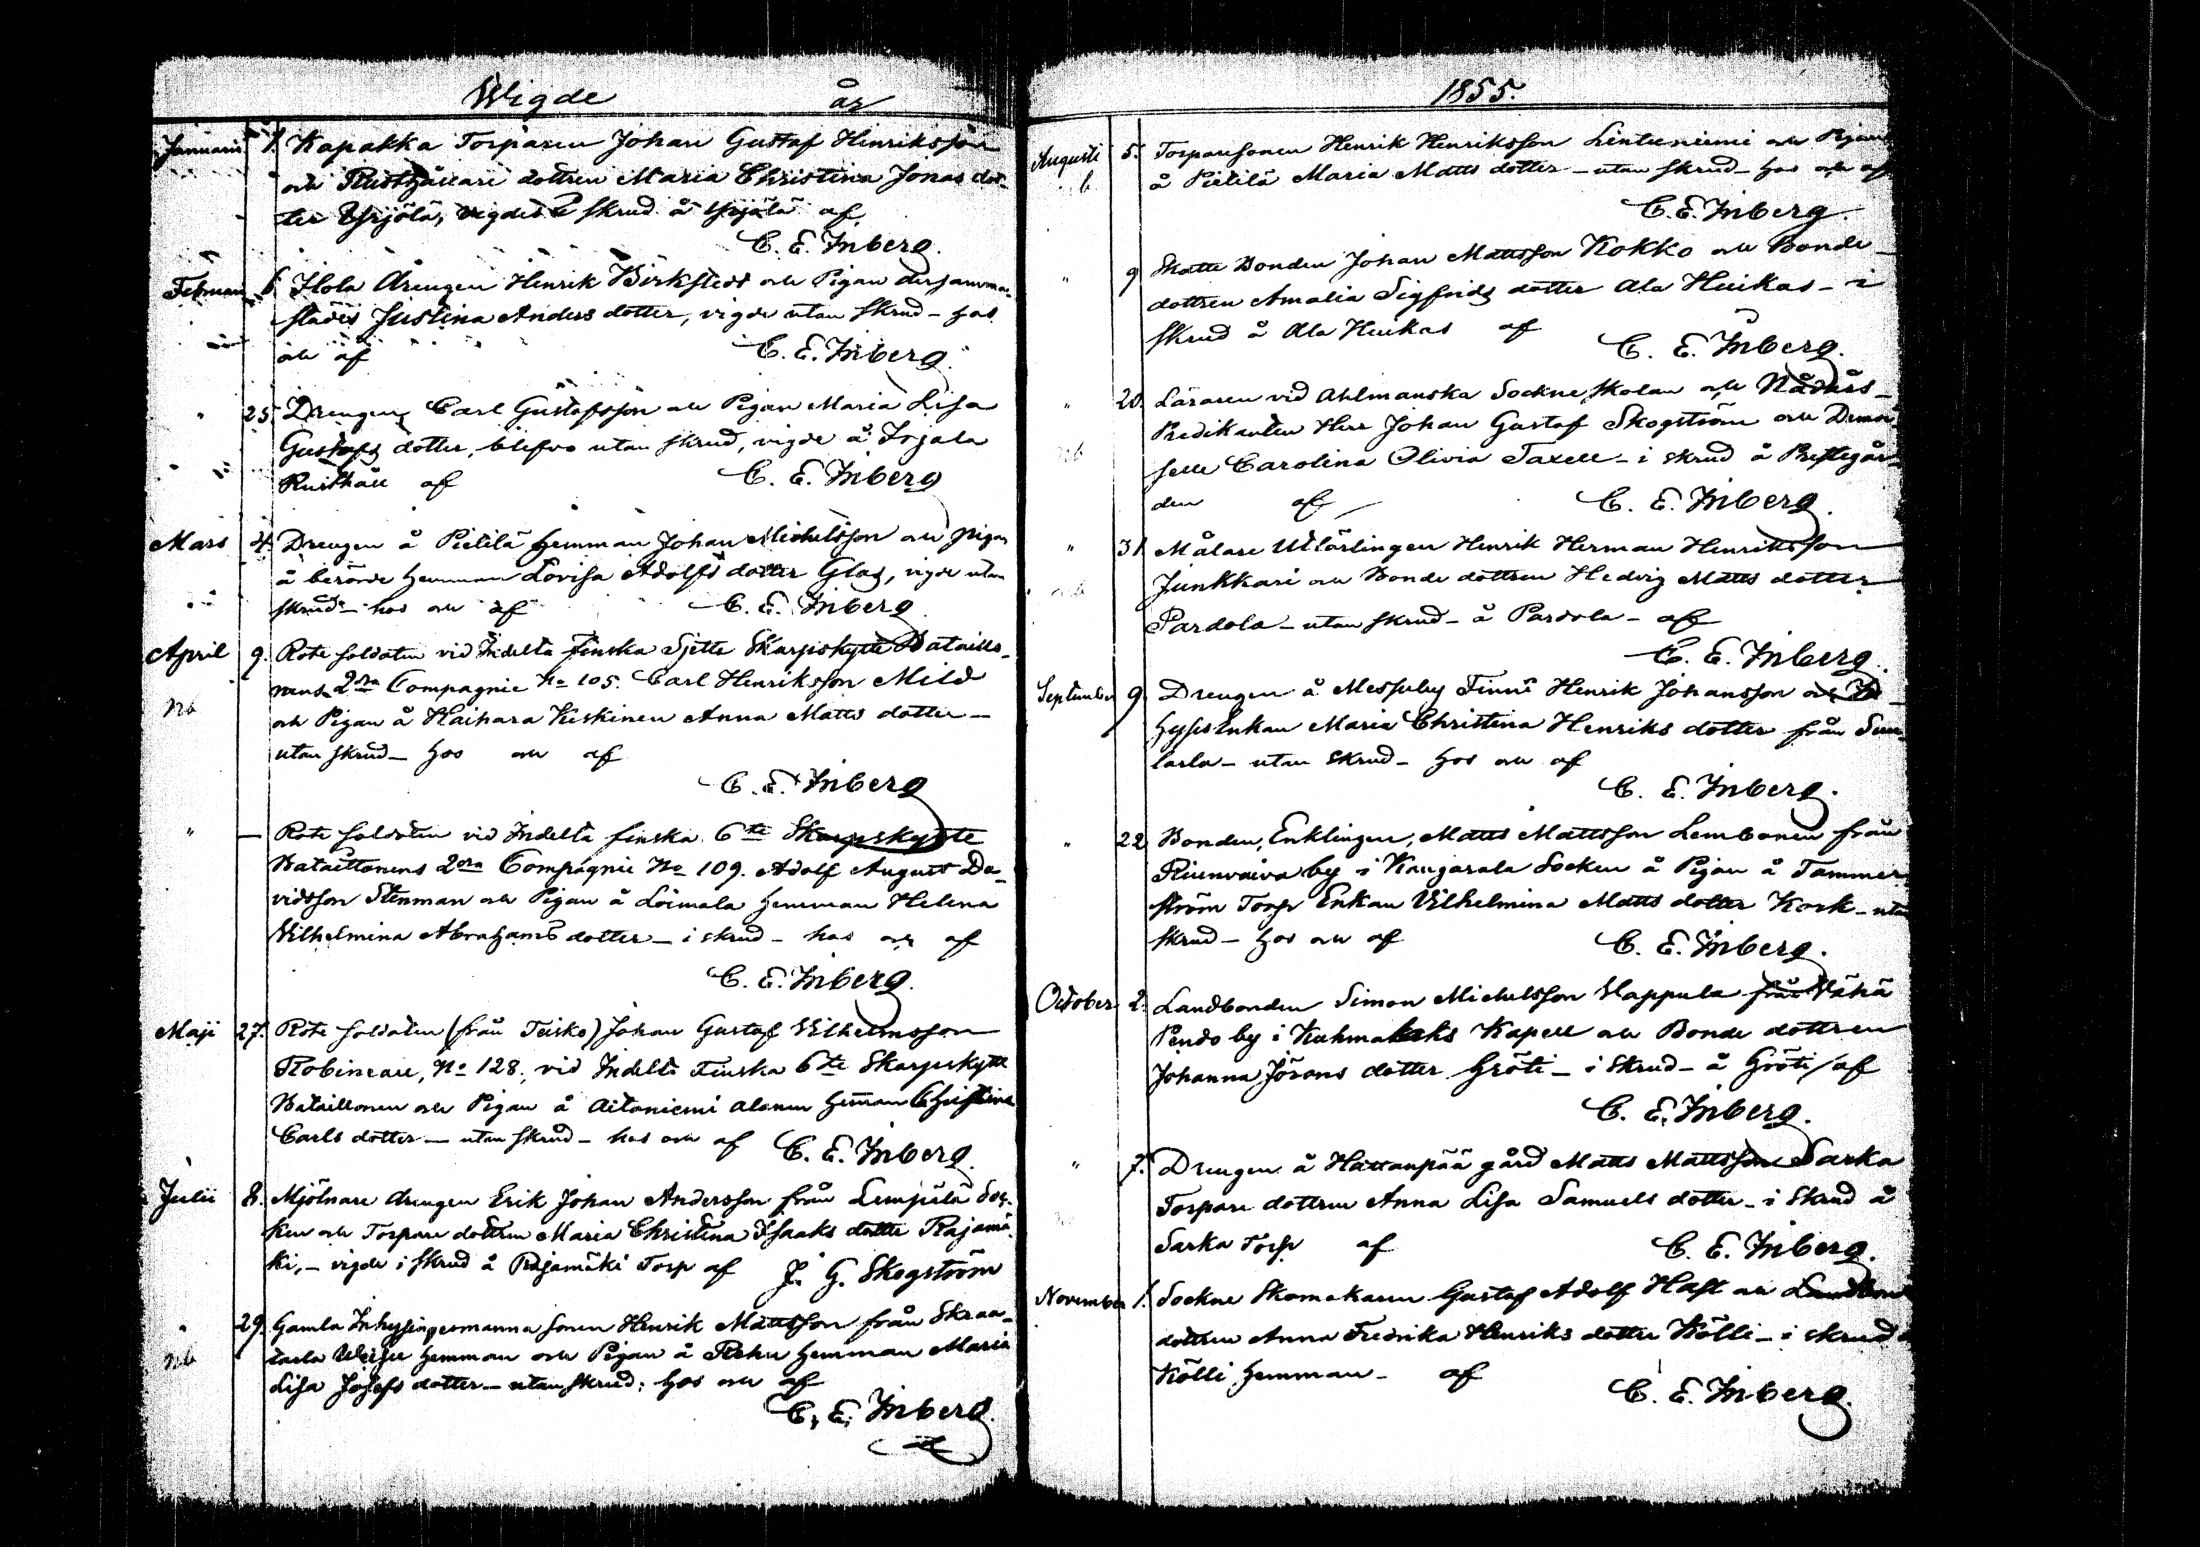 Wigde år
Januarii 1. Kapakka Torparen Johan Gustaf Hinriksson
och Rusthållare dottren Maria Christina Jonas dot-
ter Yrjölä, vigdes i skrud å Yrjölä af
C. E. Inberg.
Februarii 6. Hola drengen Henrik Birkstedt och Pigan dersamma-
städes Justina Anders dotter, vigde utan skrud - hos
och af C. E. Inberg.
" 25. Drengen Carl Gustafsson och Pigan Maria Lisa
Gustafs dotter, blefvo utan skrud, vigde å Irjala
Rusthåll af C. E. Inberg
Mars 4. Drengen å Pietilä hemman Johan Michelsson och pigan
å berörde hemman Lovisa Adolfs dotter Glad, vigde utan
skrud - hos och af C. E. Inberg
April 9. Rote soldaten vid Indelta finska Sjette Skarpskytte Bataillo-
nens 2dra Compagnie No 105. Carl Henriksson Mild
nb och Pigan å Haihara Keskinen Anna Matts dotter -
utan skrud - hos och af
C. E. Inberg
" — Rote soldaten vid Indelta finska 6te Skarpskytte
Bataillonens 2dra Compagnie No 109. Adolf August Da-
vidsson Stenman och Pigan å Loimala hemman Helena
Wilhelmina Abrahams dotter - i skrud - hos och af
C. E. Inberg.
Maji 27. Rote soldaten (från Teisko) Johan Gustaf Wilhelmsson
No 128. vid Indelta Finska 6te Skarpskytte
Bataillonen och Pigan å Aitoniemi Alanen hemman Christina
Carls dotter - utan skrud - hos och af C. E. Inberg.
Julii 8. Mjölnare drengen Erik Johan Andersson från Lempälä Soc-
ken och Torpare dottren Maria Christina Isaaks dotter Rajamä-
ki, - vigde i skrud å Rajamäki Torp af J. G. Skogström
" 29. Gamla Inhysingesmanna sonen Henrik Mattsson från
nb hemman och Pigan å hemman Maria
Lisa Josefs dotter - utan skrud; hos och af
C. E. Inberg.
1855.
Augusti 5. Torparesonen Henrik Henriksson Lintuniemi och Pigan
å Pietilä Maria Matts dotter - utan skrud - hos och af
C. E. Inberg.
" 9 Skatte Bonden Johan Mattsson Kokko och Bonde-
dottren Amalia Sigfrids dotter Ala Huikas - i
skrud å Ala Huikas af
C. E. Inberg.
" 20. Läraren vid Ahlmanska Sockne Skolan och Nådårs-
Predikanten Herr Johan Gustaf Skogström och Demoi-
selle Carolina Olivia Taxell - i skrud å Prestegår-
den af C. E. Inberg.
" 31 Målare Utlärlingen Henrik Herman Henriksson
Junkkari och Bonde dottren Hedvig Matts dotter
Pardola - utan skrud - å Pardola - af
C. E. Inberg.
September 9. Drengen å Messuby Finni Henrik Johansson och In-
hyses Enkan Maria Christina Henriks dotter från
- utan skrud - hos och af
C. E. Inberg.
" 22 Bonden, Enklingen, Matts Mattsson Lembonen från
Riunvaiva by i Kangasala Socken å Pigan å Tammer
ström Torp Enkan Wilhelmina Matts dotter Kork - utan
skrud - hos och af C. E. Inberg.
October 2. Landbonden Simon Michelsson Wappula från Vähä
Pendo by i Kuhmalahts Kapell och Bonde dottren
Johanna Jörans dotter Gröti - i skrud - å Gröti af
C. E. Inberg.
" 7. Drengen å Hattanpää gård Matts Mattsson Sarka
Torpare dottren Anna Lisa Samuels dotter - i skrud å
Sarka Torp af C. E. Inberg.
November 1. Sockne Skomakaren Gustaf Adolf Haft och Landbonde
dottren Anna Fredrika Henriks dotter Kölli - i skrud å
Kölli hemman - af
C. E. Inberg.